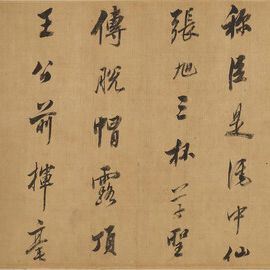 称臣是酒中仙
張旭三杯草聖
傳脫帽露頂
王公前揮毫